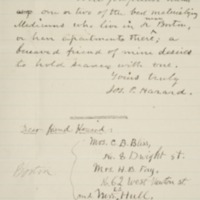 one or two of the best materializing
Mediums who live in or near Boston,
or have apartments there; a
beloved friend of mine desires
to hold Seances with one.
Yours truly
Jos. P. Hazard.
Dear friend Hazard:
Mrs. C. B. Bliss,
No. 8 Dwight st.
Mrs. H. B. Fay,
Boston
West Newton st
and Mrs. Hull